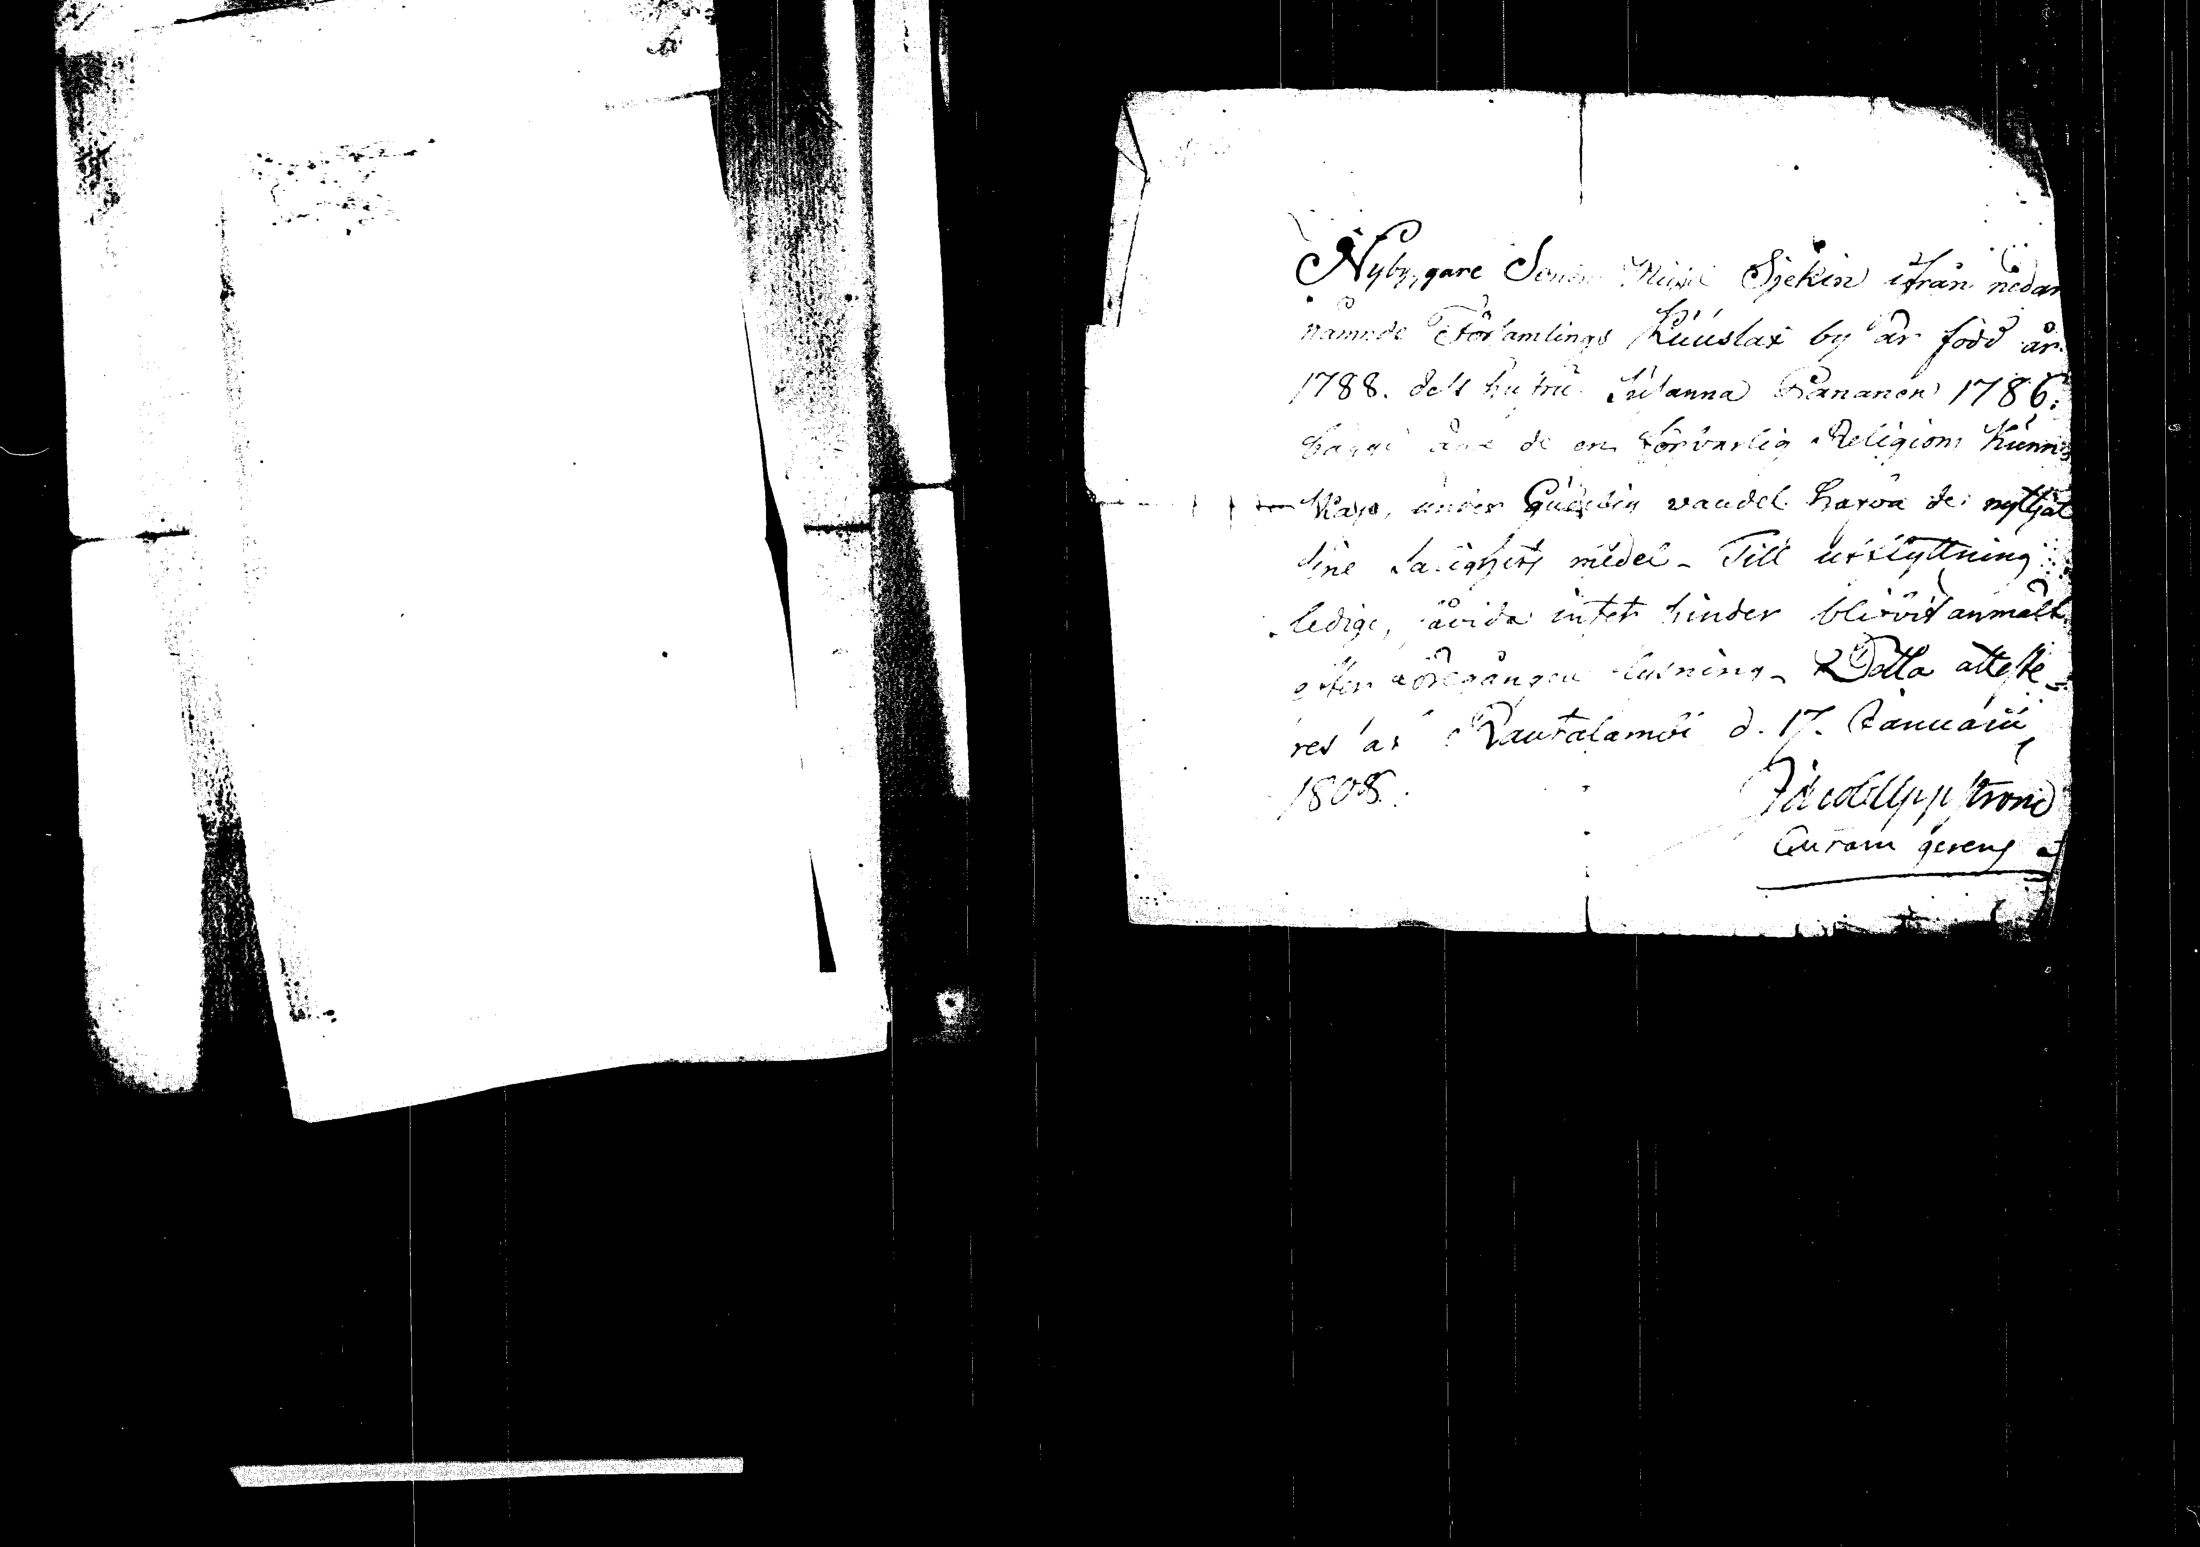 Nybyggare Sonen Michel Sjekin ifrån nedan
nämnde Församlings Kuuslax by är född år
1788. dess hustru Susanna Pananen 1786.
äga de en försvarlig Religions kunn-
skap, under Gudelig vandel hafva de nyttjat
sine salighets medel - Till utflyttning
ledige, såvida intet hinder blifvit anmält
efter föregången lysning - Detta atteste-
res af Rautalambi d. 17. Januarii
1808.
Jacob Uppström
Curam gerens